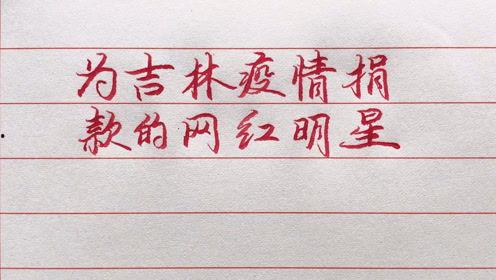 为吉林疫情捐
款的网红明星